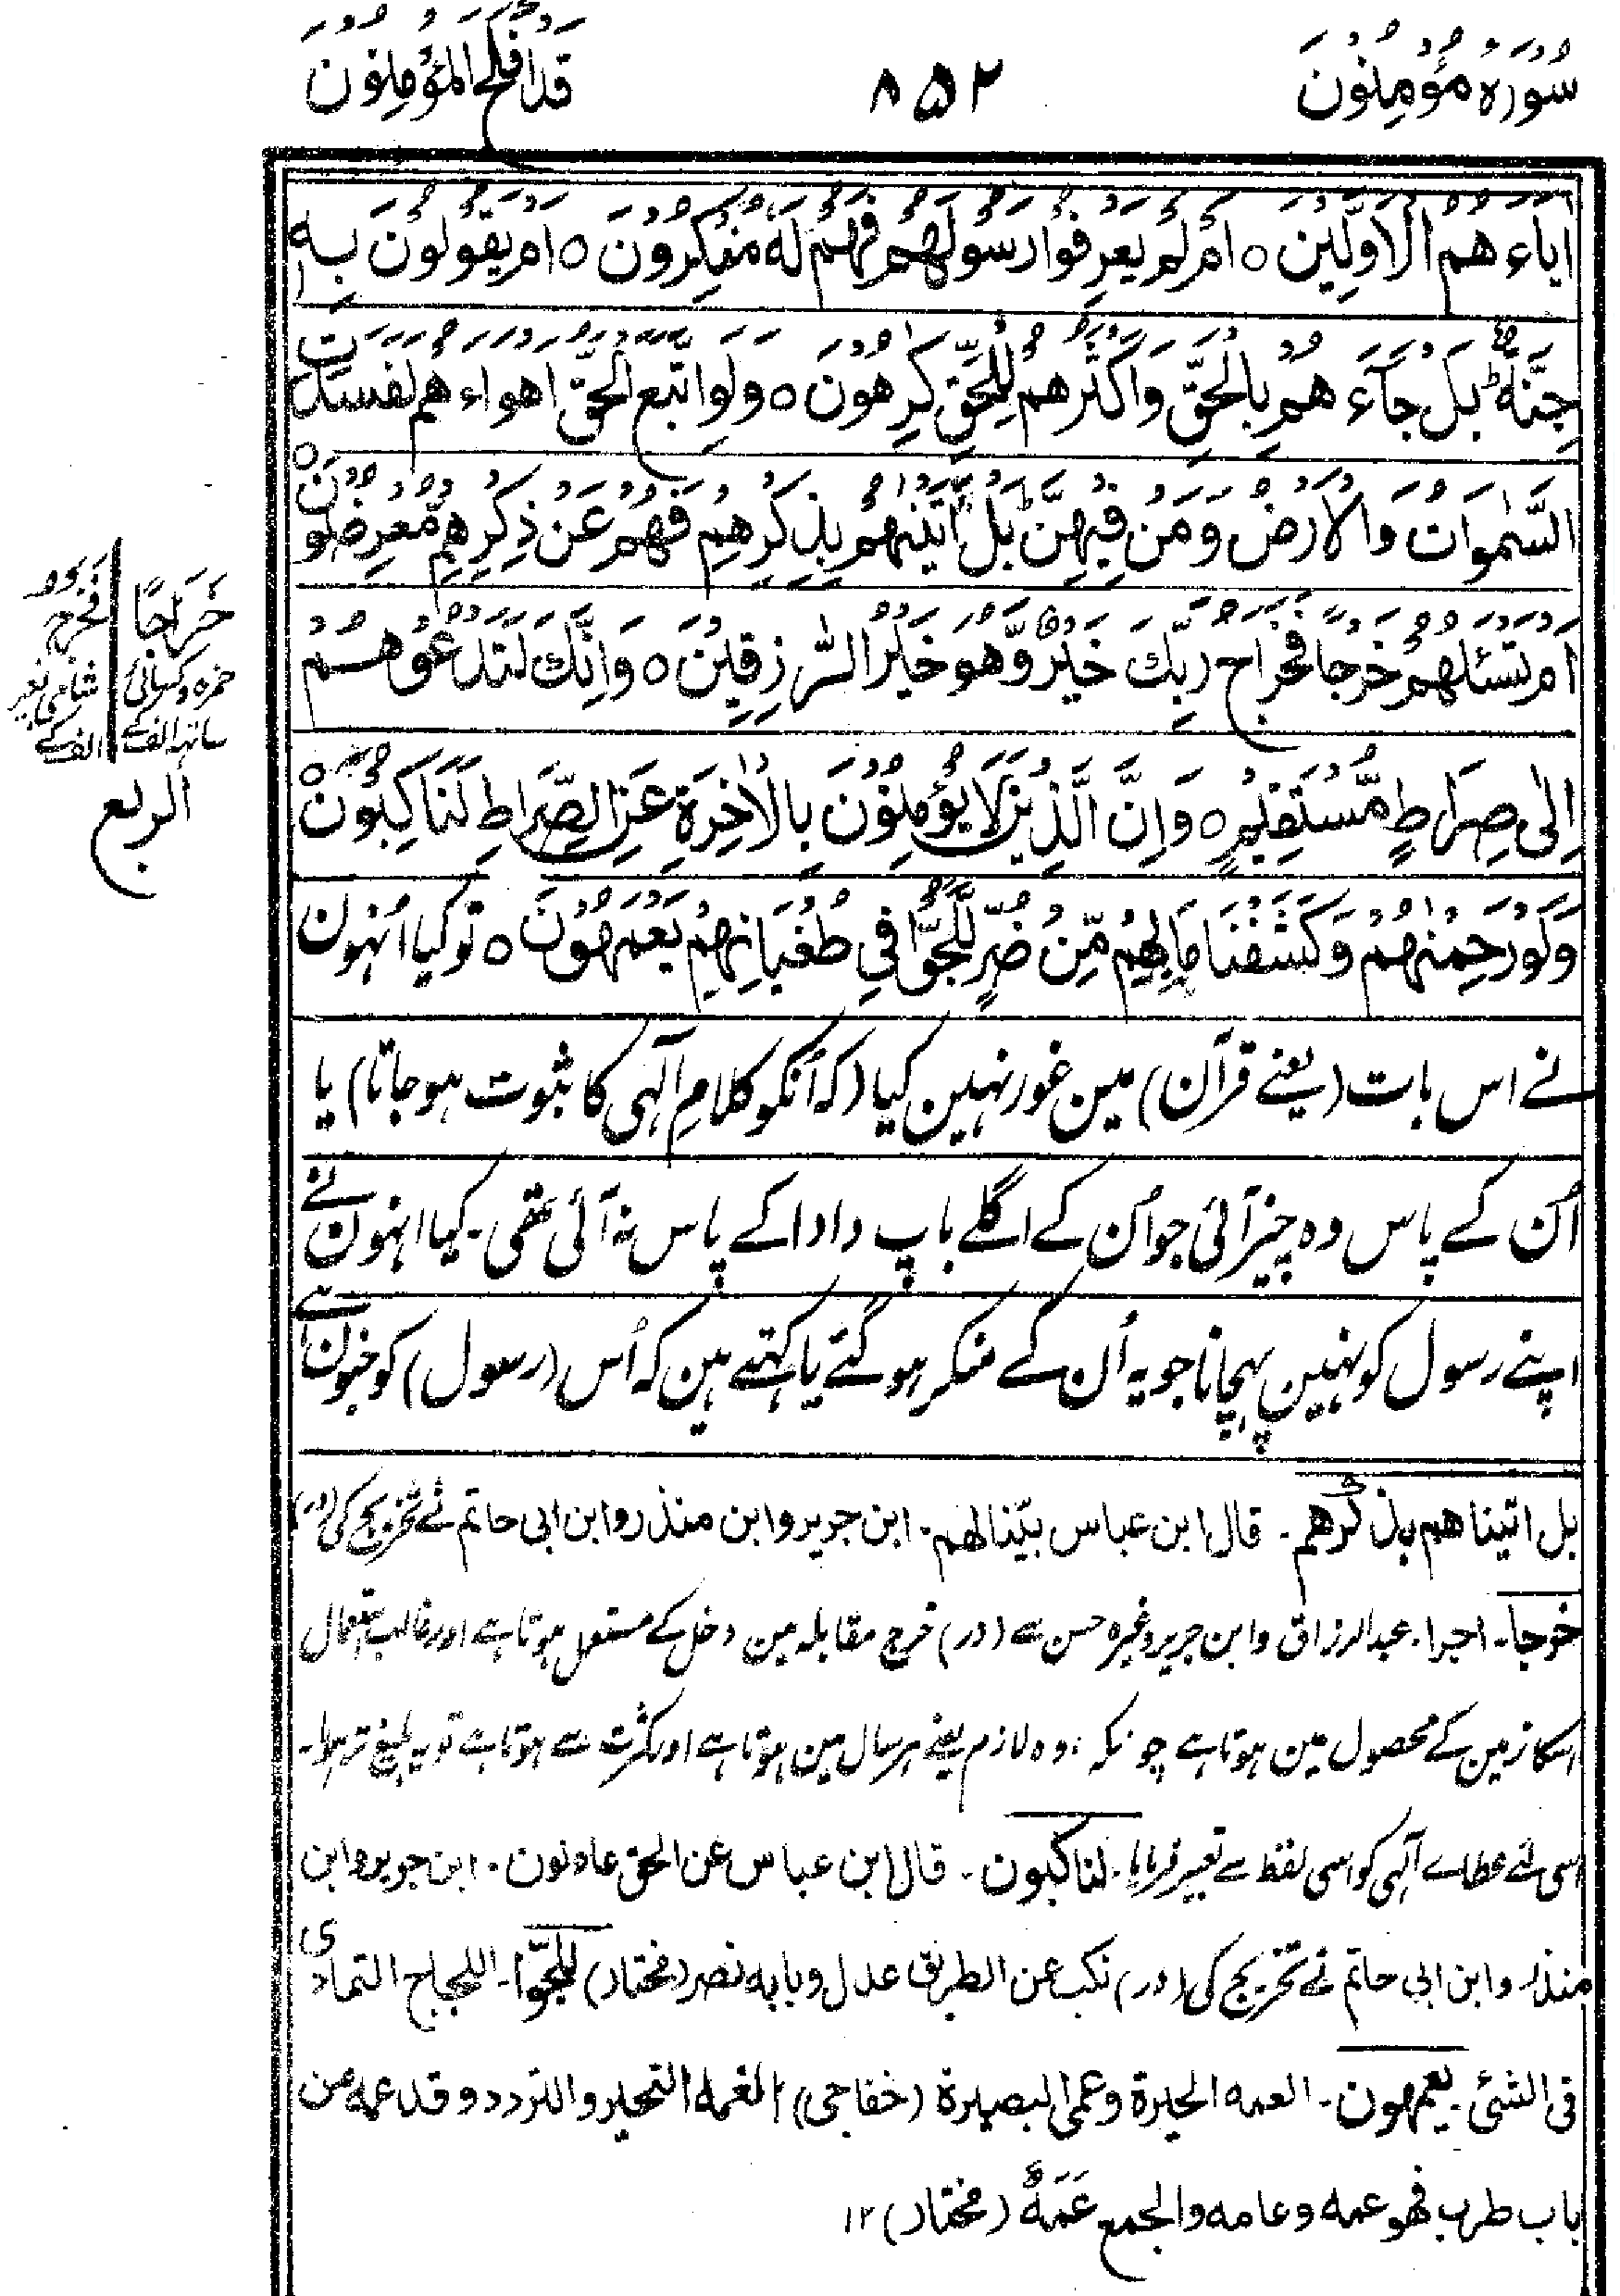 سُوْرَہ مُؤْمِنُوْنَ
۸۵۲
قَدْ اَفْلَحَ الْمُؤْمِنُوْنَ
اٰبَآءَ هُمُ الْاَوَّلِيْنَ ○ اَمْ لَمْ يَعْرِفُوْا رَسُوْلَهُمْ فَهُمْ لَهٗ مُنْكِرُوْنَ ○ اَمْ يَقُوْلُوْنَ بِهٖ
جِنَّةٌ ؕ بَلْ جَآءَ هُمْ بِالْحَقِّ وَاَكْثَرُهُمْ لِلْحَقِّ كٰرِهُوْنَ ○ وَلَوِاتَّبَعَ الْحَقُّ اَهْوَاءَهُمْ لَفَسَدَتِ
السَّمٰوَاتُ وَالْاَرْضُ وَمَنْ فِيْهِنَّ ؕ بَلْ اَتَيْنٰهُمْ بِذِكْرِهِمْ فَهُمْ عَنْ ذِكْرِهِمْ مُّعْرِضُوْنَ ○
اَمْ تَسْئَلُهُمْ خَرْجًا فَخَرَاجُ رَبِّكَ خَيْرٌ وَّهُوَ خَيْرُ الرّٰزِقِيْنَ ○ وَاِنَّكَ لَتَدْعُوْهُمْ
اِلٰى صِرَاطٍ مُّسْتَقِيْمٍ ○ وَاِنَّ الَّذِيْنَ لَا يُؤْمِنُوْنَ بِالْاٰخِرَةِ عَنِ الصِّرَاطِ لَنَاكِبُوْنَ ○
وَلَوْ رَحِمْنٰهُمْ وَكَشَفْنَا مَا بِهِمْ مِّنْ ضُرٍّ لَّلَجُّوْا فِيْ طُغْيَانِهِمْ يَعْمَهُوْنَ ○ تو کیا اُنہون
نے اس بات (یعنے قرآن) مین غور نہین کیا (کہ اُنکو کلامِ آلٰہی کا ثبوت ہو جاتا) یا
اُن کے پاس وہ چیز آئی جو اُن کے اگلے باپ دادا کے پاس نہ آئی تھی۔ کیا انہون نے
اپنے رسول کو نہین پہچانا جو یہ اُن کے منکر ہو گئے یا کہتے ہین کہ اُس (رسول) کو جنون ہے
خَرَاجًا
حمزہ و کسائی
ساتھ الف کے
فَخَرْجُ
شامی بغیر
الف کے
الربع
بل اتیناهم بذکرهم۔ قال ابن عباس بیّنا لهم۔ ابن جریر و ابن منذر و ابن ابی حاتم نے تخریج کی (در)
خرجا۔ اجرا۔ عبدالرزاق و ابن جریر وغیرہ حسن سے (در) خرج مقابلہ مین دخل کے مستعمل ہوتا ہے اور غالب استعمال
اسکا زمین کے محصول مین ہوتا ہے چونکہ وہ لازم یعنے ہر سال مین ہوتا ہے اور بکثرت سے ہوتا ہے تو یہ بلیغ تر ہوا۔
اسی لئے عطاے آلٰہی کو اسی لفظ سے تعبیر فرمایا۔ لناکبون۔ قال ابن عباس عن الحق عادلون۔ ابن جریر و ابن
منذر و ابن ابی حاتم نے تخریج کی (در) نکب عن الطریق عدل وبابه نصر (مختار) للجّوا۔ اللجاج التمادی
فی الشئ۔ یعمهون۔ العمه الحیرة وعمی البصیرة (خفاجی) العمه التحیر والتردد وقد عمه من
باب طرب فهو عمه وعامه والجمع عُمَّهٌ (مختار) ۱۲